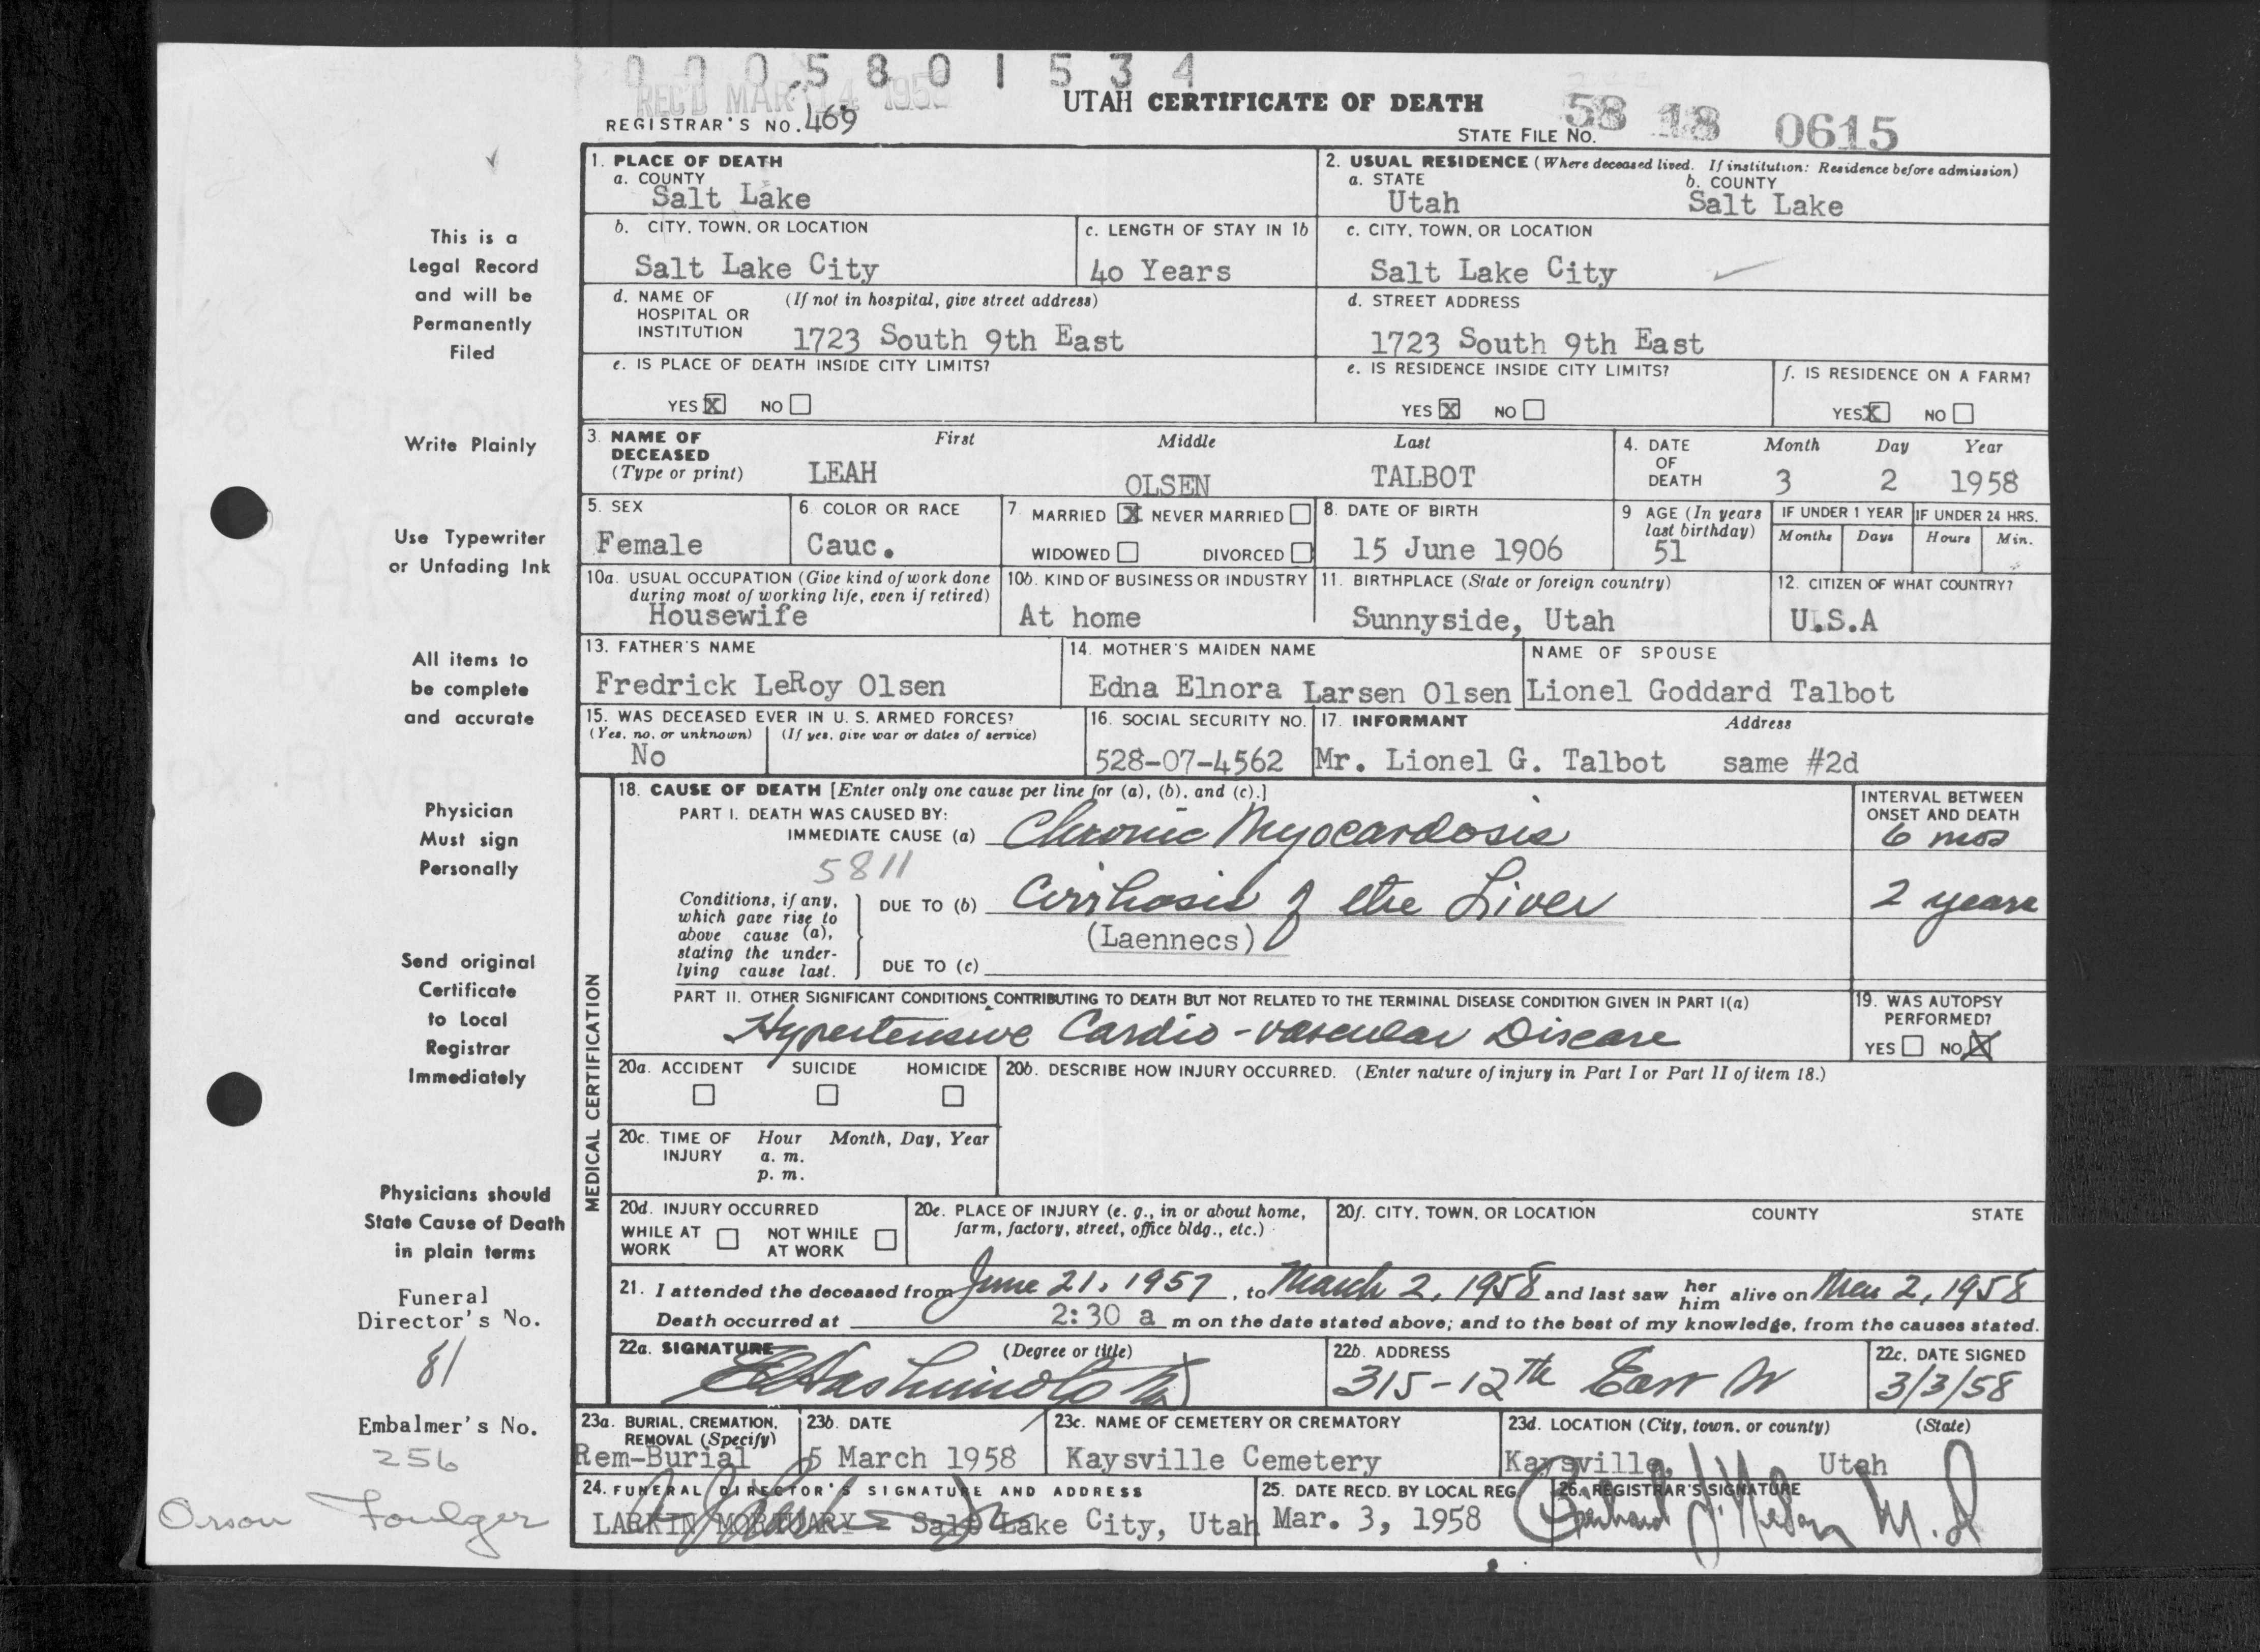 0 0 0 5 8 0 1 5 3 4
REC'D MAR 14 195
UTAH CERTIFICATE OF DEATH
REGISTRAR'S NO. 469
STATE FILE NO. 58 18 0615
This is a
Legal Record
and will be
Permanently
Filed
Write Plainly
Use Typewriter
or Unfading Ink
All items to
be complete
and accurate
Physician
Must sign
Personally
Send original
Certificate
to Local
Registrar
Immediately
Physicians should
State Cause of Death
in plain terms
Funeral
Director's No.
81
Embalmer's No.
256
Orson Foulger
1. PLACE OF DEATH
a. COUNTY
Salt Lake
2. USUAL RESIDENCE (Where deceased lived. If institution: Residence before admission)
a. STATE b. COUNTY
Utah Salt Lake
b. CITY, TOWN, OR LOCATION
Salt Lake City
c. LENGTH OF STAY IN 1b
40 Years
c. CITY, TOWN, OR LOCATION
Salt Lake City
d. NAME OF (If not in hospital, give street address)
HOSPITAL OR
INSTITUTION 1723 South 9th East
d. STREET ADDRESS
1723 South 9th East
e. IS PLACE OF DEATH INSIDE CITY LIMITS?
YES X NO
e. IS RESIDENCE INSIDE CITY LIMITS?
YES X NO
f. IS RESIDENCE ON A FARM?
YES X NO
3. NAME OF DECEASED (Type or print)
First Middle Last
LEAH OLSEN TALBOT
4. DATE OF DEATH
Month Day Year
3 2 1958
5. SEX
Female
6. COLOR OR RACE
Cauc.
7. MARRIED X NEVER MARRIED
WIDOWED DIVORCED
8. DATE OF BIRTH
15 June 1906
9 AGE (In years last birthday)
51
IF UNDER 1 YEAR IF UNDER 24 HRS.
Months Days Hours Min.
10a. USUAL OCCUPATION (Give kind of work done
during most of working life, even if retired)
Housewife
10b. KIND OF BUSINESS OR INDUSTRY
At home
11. BIRTHPLACE (State or foreign country)
Sunnyside, Utah
12. CITIZEN OF WHAT COUNTRY?
U.S.A
13. FATHER'S NAME
Fredrick LeRoy Olsen
14. MOTHER'S MAIDEN NAME
Edna Elnora Larsen Olsen
NAME OF SPOUSE
Lionel Goddard Talbot
15. WAS DECEASED EVER IN U. S. ARMED FORCES?
(Yes, no, or unknown) (If yes, give war or dates of service)
No
16. SOCIAL SECURITY NO.
528-07-4562
17. INFORMANT Address
Mr. Lionel G. Talbot same #2d
MEDICAL CERTIFICATION
18. CAUSE OF DEATH [Enter only one cause per line for (a), (b), and (c).]
PART I. DEATH WAS CAUSED BY:
IMMEDIATE CAUSE (a) Chronic Myocardosis
INTERVAL BETWEEN
ONSET AND DEATH
6 mos
5811
Conditions, if any,
which gave rise to
above cause (a),
stating the under-
lying cause last.
DUE TO (b) Cirrhosis of the Liver
2 years
(Laennecs)
DUE TO (c)
PART II. OTHER SIGNIFICANT CONDITIONS CONTRIBUTING TO DEATH BUT NOT RELATED TO THE TERMINAL DISEASE CONDITION GIVEN IN PART I(a)
Hypertensive Cardio-vascular Disease
19. WAS AUTOPSY
PERFORMED?
YES NO X
20a. ACCIDENT SUICIDE HOMICIDE
20b. DESCRIBE HOW INJURY OCCURRED. (Enter nature of injury in Part I or Part II of item 18.)
20c. TIME OF INJURY Hour Month, Day, Year
a. m.
p. m.
20d. INJURY OCCURRED
WHILE AT WORK NOT WHILE AT WORK
20e. PLACE OF INJURY (e. g., in or about home,
farm, factory, street, office bldg., etc.)
20f. CITY, TOWN, OR LOCATION COUNTY STATE
21. I attended the deceased from June 21, 1957, to March 2, 1958 and last saw her him alive on Mar 2, 1958
Death occurred at 2:30 a m on the date stated above; and to the best of my knowledge, from the causes stated.
22a. SIGNATURE (Degree or title)
E Hashimoto MD
22b. ADDRESS
315-12th East
22c. DATE SIGNED
3/3/58
23a. BURIAL, CREMATION,
REMOVAL (Specify)
Rem-Burial
23b. DATE
5 March 1958
23c. NAME OF CEMETERY OR CREMATORY
Kaysville Cemetery
23d. LOCATION (City, town, or county) (State)
Kaysville, Utah
24. FUNERAL DIRECTOR'S SIGNATURE AND ADDRESS
LARKIN MORTUARY - Salt Lake City, Utah
25. DATE RECD. BY LOCAL REG.
Mar. 3, 1958
26. REGISTRAR'S SIGNATURE
M.D